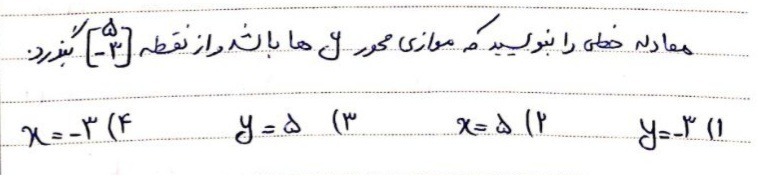 معادله خطی را بنویسید که موازی محور y ها باشد و از نقطه [۵ -۳] بگذرد.
۱) y=-۳ ۲) x=۵ ۳) y=۵ ۴) x=-۳